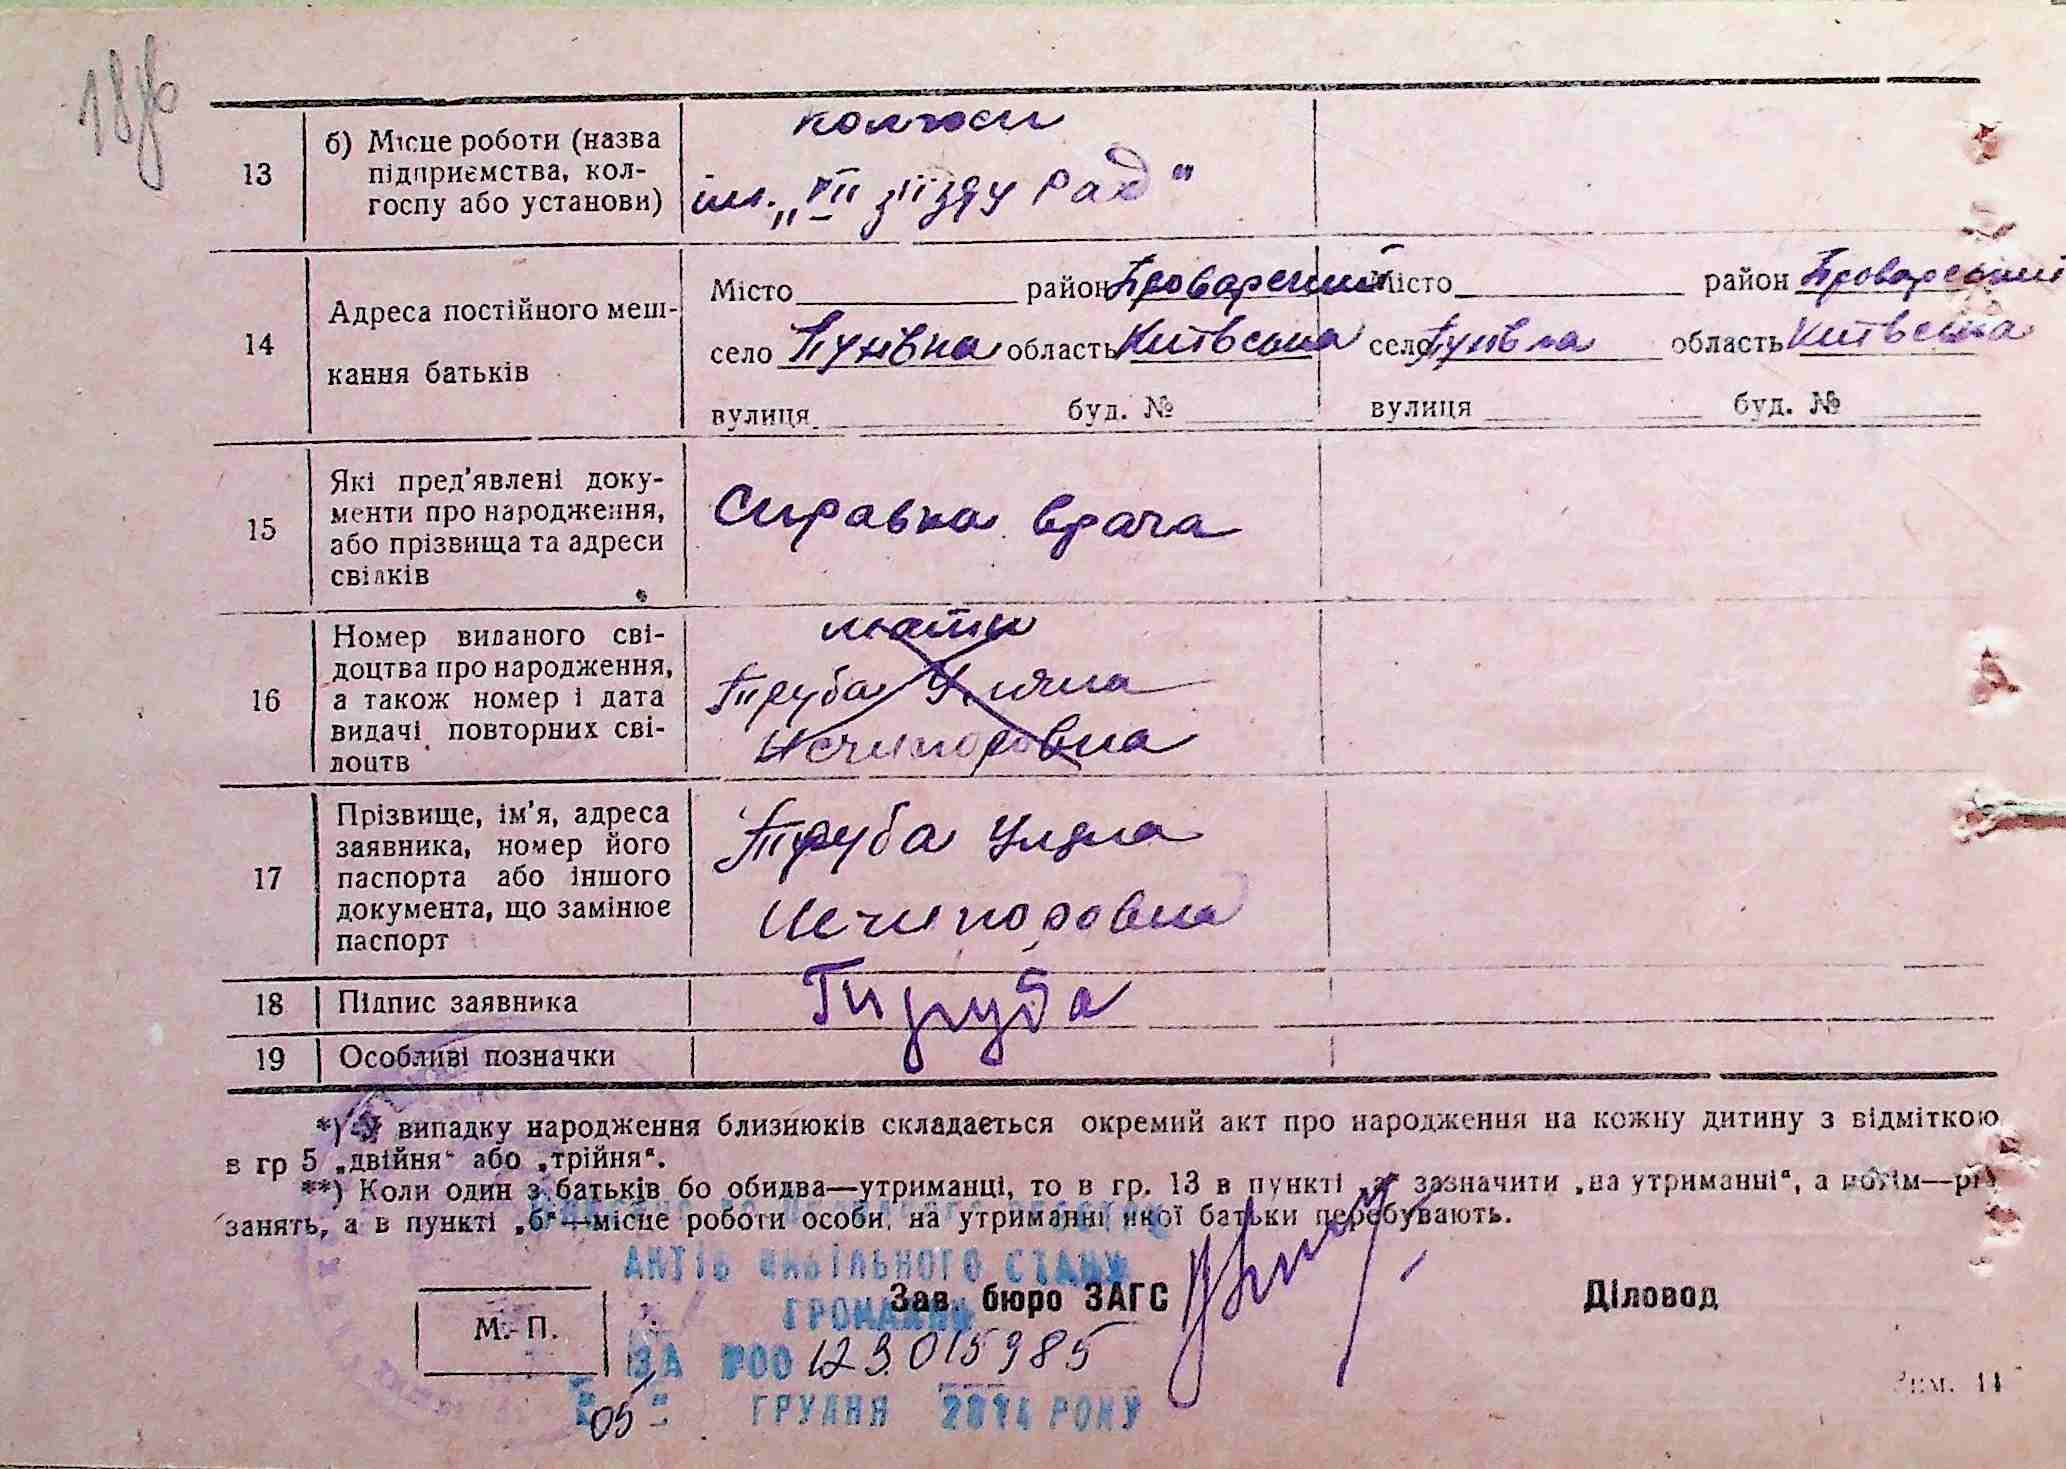 13
б) Місце роботи (назва
підприємства, кол-
госпу або установи)
колгосп
ім. „VII з'їзду Рад"
14
Адреса постійного меш-
кання батьків
Місто район Броварський Місто район Броварський
село Пухівка область Київська село Пухівка область Київська
вулиця буд. № вулиця буд. №
15
Які пред'явлені доку-
менти про народження,
або прізвища та адреси
свідків
Справка врача
16
Номер виданого сві-
доцтва про народження,
а також номер і дата
видачі повторних сві-
доцтв
мати
Труба
Нечипоровна
17
Прізвище, ім'я, адреса
заявника, номер його
паспорта або іншого
документа, що замінює
паспорт
Труба Уляна
Нечипоровна
18
Підпис заявника
Труба
19
Особливі позначки
*) У випадку народження близнюків складається окремий акт про народження на кожну дитину з відміткою
в гр 5 „двійня" або „трійня".
**) Коли один з батьків бо обидва—утриманці, то в гр. 13 в пункті „а" зазначити „на утриманні", а потім—рід
занять, а в пункті „б"—місце роботи особи, на утриманні якої батьки перебувають.
АКТІВ ЦИВІЛЬНОГО СТАНУ
ГРОМАДЯН
Зав. бюро ЗАГС
Діловод
М. П.
ЗА №00 123015985
"05" ГРУДНЯ 2014 РОКУ